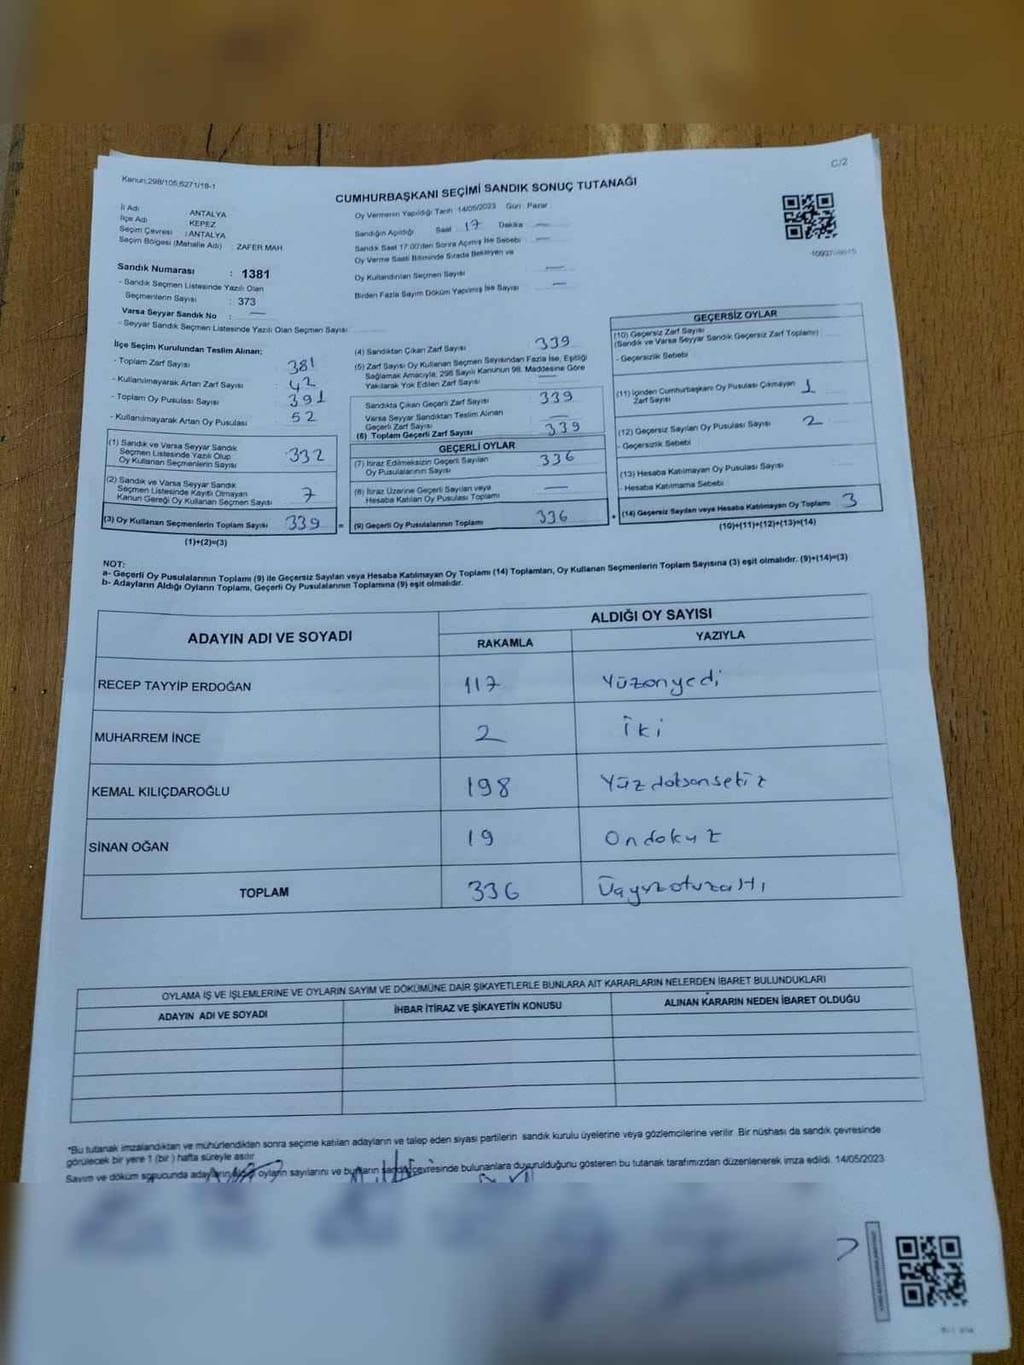 C/2
Kanun:298/105,6271/18-1
CUMHURBAŞKANI SEÇİMİ SANDIK SONUÇ TUTANAĞI
İl Adı ANTALYA
İlçe Adı KEPEZ
Seçim Çevresi : ANTALYA
Seçim Bölgesi (Mahalle Adı) : ZAFER MAH
Sandık Numarası : 1381
- Sandık Seçmen Listesinde Yazılı Olan
Seçmenlerin Sayısı : 373
Varsa Seyyar Sandık No : —
- Seyyar Sandık Seçmen Listesinde Yazılı Olan Seçmen Sayısı
Oy Vermenin Yapıldığı Tarih 14/05/2023 Gün: Pazar
Sandığın Açıldığı Saat 17 Dakika —
Sandık Saat 17:00'den Sonra Açılmış İse Sebebi —
Oy Verme Saati Bitiminde Sırada Bekleyen ve
Oy Kullandırılan Seçmen Sayısı —
Birden Fazla Sayım Döküm Yapılmış İse Sayısı —
İlçe Seçim Kurulundan Teslim Alınan:
- Toplam Zarf Sayısı 381
- Kullanılmayarak Artan Zarf Sayısı 42
- Toplam Oy Pusulası Sayısı 391
- Kullanılmayarak Artan Oy Pusulası 52
(1) Sandık ve Varsa Seyyar Sandık
Seçmen Listesinde Yazılı Olup
Oy Kullanan Seçmenlerin Sayısı 332
(2) Sandık ve Varsa Seyyar Sandık
Seçmen Listesinde Kayıtlı Olmayan
Kanun Gereği Oy Kullanan Seçmen Sayısı 7
(3) Oy Kullanan Seçmenlerin Toplam Sayısı 339 =
(1)+(2)=(3)
(4) Sandıktan Çıkan Zarf Sayısı 339
(5) Zarf Sayısı Oy Kullanan Seçmen Sayısından Fazla İse, Eşitliği
Sağlamak Amacıyla, 298 Sayılı Kanunun 98. Maddesine Göre
Yakılarak Yok Edilen Zarf Sayısı —
Sandıkta Çıkan Geçerli Zarf Sayısı 339
Varsa Seyyar Sandıktan Teslim Alınan
Geçerli Zarf Sayısı —
(6) Toplam Geçerli Zarf Sayısı 339
GEÇERLİ OYLAR
(7) İtiraz Edilmeksizin Geçerli Sayılan
Oy Pusulalarının Sayısı 336
(8) İtiraz Üzerine Geçerli Sayılan veya
Hesaba Katılan Oy Pusulası Toplamı —
(9) Geçerli Oy Pusulalarının Toplamı 336 +
GEÇERSİZ OYLAR
(10) Geçersiz Zarf Sayısı
(Sandık ve Varsa Seyyar Sandık Geçersiz Zarf Toplamı)
- Geçersizlik Sebebi
(11) İçinden Cumhurbaşkanı Oy Pusulası Çıkmayan
Zarf Sayısı 1
(12) Geçersiz Sayılan Oy Pusulası Sayısı 2
- Geçersizlik Sebebi
(13) Hesaba Katılmayan Oy Pusulası Sayısı
- Hesaba Katılmama Sebebi
(14) Geçersiz Sayılan veya Hesaba Katılmayan Oy Toplamı 3
(10)+(11)+(12)+(13)=(14)
NOT:
a- Geçerli Oy Pusulalarının Toplamı (9) ile Geçersiz Sayılan veya Hesaba Katılmayan Oy Toplamı (14) Toplamları, Oy Kullanan Seçmenlerin Toplam Sayısına (3) eşit olmalıdır. (9)+(14)=(3)
b- Adayların Aldığı Oyların Toplamı, Geçerli Oy Pusulalarının Toplamına (9) eşit olmalıdır.
ADAYIN ADI VE SOYADI ALDIĞI OY SAYISI
RAKAMLA YAZIYLA
RECEP TAYYİP ERDOĞAN 117 Yüzonyedi
MUHARREM İNCE 2 İki
KEMAL KILIÇDAROĞLU 198 Yüzdoksansekiz
SİNAN OĞAN 19 Ondokuz
TOPLAM 336 Üçyüzotuzaltı
OYLAMA İŞ VE İŞLEMLERİNE VE OYLARIN SAYIM VE DÖKÜMÜNE DAİR ŞİKAYETLERLE BUNLARA AİT KARARLARIN NELERDEN İBARET BULUNDUKLARI
ADAYIN ADI VE SOYADI İHBAR İTİRAZ VE ŞİKAYETİN KONUSU ALINAN KARARIN NEDEN İBARET OLDUĞU
*Bu tutanak imzalandıktan ve mühürlendikten sonra seçime katılan adayların ve talep eden siyasi partilerin sandık kurulu üyelerine veya gözlemcilerine verilir. Bir nüshası da sandık çevresinde
görülecek bir yere 1 (bir) hafta süreyle asılır.
Sayım ve döküm sonucunda adayların oyların sayılarını ve bunların sandık çevresinde bulunanlara duyurulduğunu gösteren bu tutanak tarafımızdan düzenlenerek imza edildi. 14/05/2023